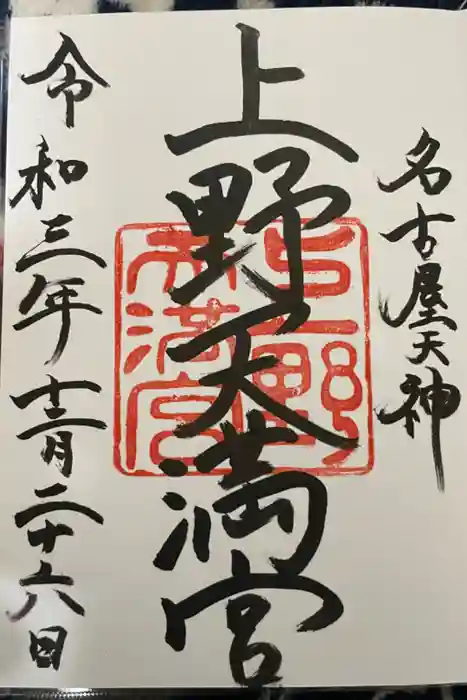 名古屋天神
上野天満宮
上野
天満宮
令和三年十二月二十六日